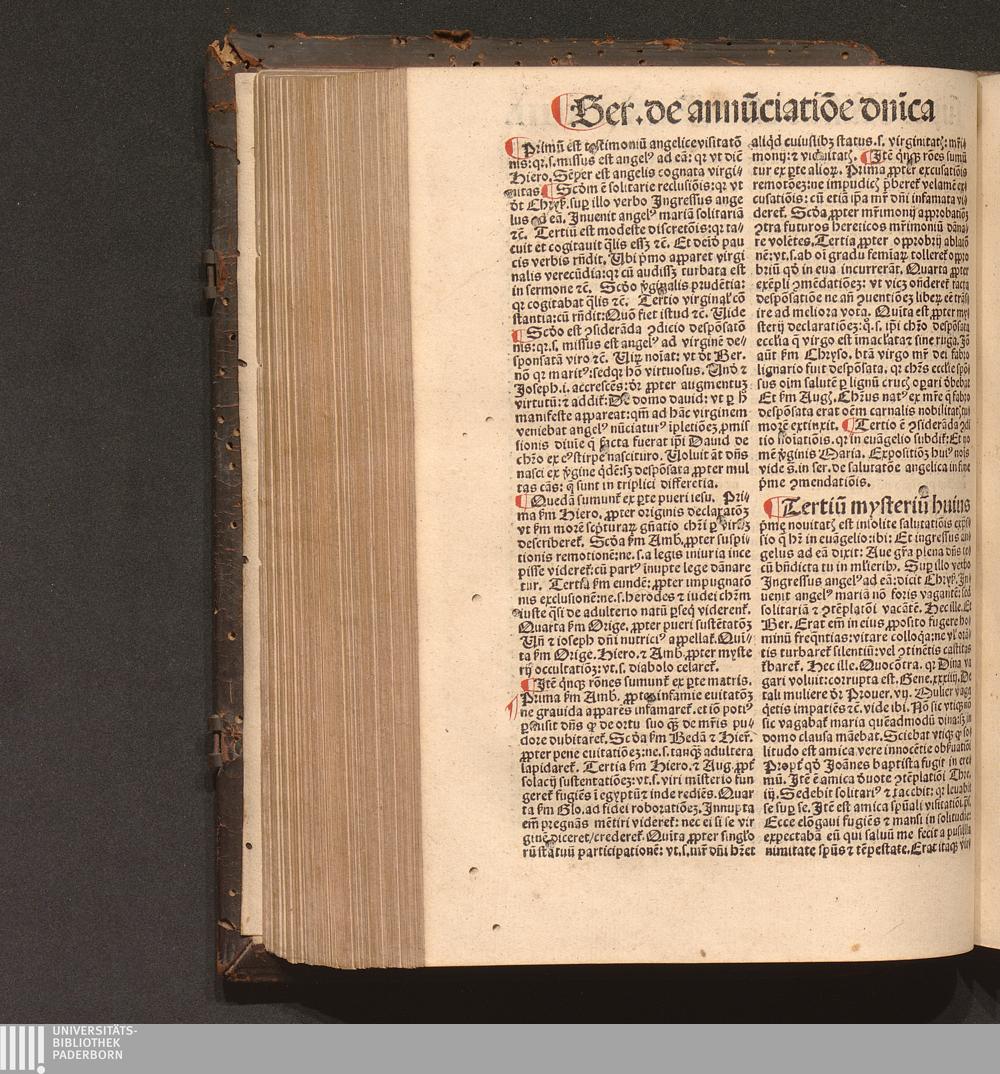 Ser. de annūciatiōe dnīca
Primū est testimoniū angelice visitatō
nis: qr. s. missus est angelꝰ ad eā: qr vt diē
Hiero. Sēper est angelis cognata virgi⸗
nitas. Scdm ē solitarie reclusiōis: qr vt
dt Chryß. suꝑ illo verbo Ingressus ange
lus ad eā. Inuenit angelꝰ mariā solitariā
⁊c̄. Tertiū est modeste discretōis: qr ta⸗
cuit et cogitauit q̄lis essꝫ ⁊c̄. Et deīd pau
cis verbis rn̄dit. Ubi pmo apparet virgi
nalis verecūdia: qr cū audissꝫ turbata est
in sermone ⁊c̄. Scdo v̓ginalis prudētia:
qr cogitabat q̄lis ⁊c̄. Tertio virginal̓ cō
stantia: cū rn̄dit: Quō fiet istud ⁊c̄. Uide
Scdo est ꝯsiderāda ꝯdicio desposatō
nis: qr. s. missus est angelꝰ ad virginē de⸗
sponsatā viro ⁊c̄. Uirqꝫ noīat: vt dt Ber.
nō qr maritꝰ: sed qr hō virtuosus. Unō ⁊
Joseph. i. accrescēs: dr ꝓpter augmentuꝫ
virtutū: ⁊ addit̓: De domo dauid: vt ꝑ h̄
manifeste appareat: qm̄ ad hāc virginem
veniebat angelꝰ nūciaturꝰ īpletiōeꝫ ꝓmis
sionis diuīe q̄ facta fuerat ip̄i Dauid de
chr̄o ex eꝰ stirpe nascituro. Uoluit āt dn̄s
nasci ex v̓gine qdē: sꝫ despōsata ꝓpter mul
tas cās: q̄ sunt in triplici differētia.
Quedā sumunt̓ ex ꝑte pueri iesu. Pri⸗
ma ßm Hiero. ꝓpter originis declaratōꝫ
vt ßm morē scpturaꝝ gn̄atio chr̄i ꝑ virōꝫ
describeret̓. Scda ßm Amb. ꝓpter suspi⸗
tionis remotionē: ne. s. a legis iniuria ince
pisse videret̓: cū partꝰ inupte lege dānare
tur. Tertia ßm eundē: ꝓpter impugnatō
nis exclusionē: ne. s. herodes ⁊ iudei chrm̄
iuste q̄si de adulterio natū ꝑseq̄ viderent̓.
Quarta ßm Orige. ꝓpter pueri sustētatōꝫ
Un̄ ⁊ ioseph dn̄i nutriciꝰ appellat̓. Qui⸗
ta ßm Orige. Hiero. ⁊ Amb. ꝓpter myste
rij occultatiōꝫ: vt. s. diabolo celaret̓.
Itē qn̄qꝫ rōnes sumunt̓ ex ꝑte matris.
Prima ßm Amb. ꝓpter infamie euitatōꝫ
ne grauida apparēs infamaret̓. et iō potiꝰ
ꝑmisit dn̄s ꝙ de ortu suo qꝫ de mr̄is pu⸗
dore dubitaret̓. Scda ßm Bedā ⁊ Hier̓.
ꝓpter pene euitatiōeꝫ: ne. s. tanqꝫ adultera
lapidaret̓. Tertia ßm Hiero. ⁊ Aug. ꝓpt̓
solacij sustentatiōeꝫ: vt. s. viri misterio fun
geret̓ fugiēs ī egyptū ⁊ inde rediēs. Quar
ta ßm Glo. ad fidei roboratiōeꝫ. Innupta
em̄ pregnās mētiri videret̓: nec ei si se vir
ginē diceret / crederet̓. Quīta ꝓpter singl̓o
rū statuū participationē: vt. s. mr̄ dn̄i hr̄et
aliqd cuiuslibꝫ status. s. virginitatꝫ: mr̄i⸗
monij: ⁊ viduitatꝫ. Itē qn̄qꝫ rōes sumū
tur ex ꝑte alioꝝ. Prima ꝓpter excusatiōis
remotōeꝫ: ne impudicꝫ p̄beret̓ velamē ex
cusatiōis: cū etiā ip̄a mr̄ dn̄i infamata vi
deret̓. Scda ꝓpter mr̄imonij approbatiōꝫ
ꝯtra futuros hereticos mr̄imoniū dāna⸗
re volētes. Tertia ꝓpter opprobrij ablatō
nē: vt. s. ab oī gradu femīaꝝ tolleret̓ oppro
briū qd in eua incurrerāt. Quarta ꝓpter
exēpli ꝯmēdatiōeꝫ: vt vicꝫ on̄deret̓ facta
despōsatiōe ne an̄ ꝯuentiōeꝫ liberꝫ eē trās
ire ad meliora vota. Quīta est ꝓpter my
sterij declaratiōeꝫ: q̄. s. ip̄i chr̄o despōsata
ecclia q̄ virgo est īmaclata ⁊ sine ruga. Iō
aūt ßm Chryso. btā virgo mr̄ dei fabro
lignario fuit despōsata, qr chr̄s ecclie spō
sus oīm salutē ꝑ lignū crucꝫ oꝑari dēbebat
Et ßm Augꝫ. Chr̄us natꝰ ex mr̄e q̄ fabro
despōsata erat oēm carnalis nobilitatꝫ tu
morē extinxit. Tertio ē ꝯsiderāda ꝯdi
tio noīatiōis. qr in euāgelio subdit̓: Et no
mē v̓ginis Maria. Expositiōꝫ huiꝰ nois
vide s̄. in ser. de salutatōe angelica in fine
pme ꝯmendatiōis.
Tertiū mysteriū huius
pme nouitatꝫ est insolite salutatiōis exp̄s
sio q̄ hr̄ in euāgelio: ibi: Et ingressus an
gelus ad eā dixit: Aue gr̄a plena dn̄s te
cū bn̄dicta tu in mlieribꝰ. Suꝑ illo verbo
Ingressus angelꝰ ad eā: dicit Chryß. In
uenit angelꝰ mariā nō foris vagantē: sed
solitariā ⁊ ꝯtēplatōi vacātē. Hec ille. Et
Ber. Erat em̄ in eius ꝓposito fugere ho
minū freqn̄tias: vitare colloqa: ne vl̓ orā
tis turbaret̓ silentiū: vel ꝯtinētis castitas
tbaret̓. Hec ille. Quocōtra. qr Dina va
gari voluit: corrupta est. Gene. xxxiiij. De
tali muliere dr Prouer. vij. Mulier vaga
qetis impatiēs ⁊c̄. vide ibi. Nō sic vtiqꝫ nō
sic vagabat̓ maria quēadmodū dina: sꝫ in
domo clausa māebat. Sciebat vtiqꝫ ꝙ so
litudo est amica vere innocētie obßuatiōi
Propt̓ qd Joānes baptista fugit in ere
mū. Itē ē amica deuote ꝯtēplatiōi Thre.
iij. Sedebit solitariꝰ ⁊ tacebit: qr leuabit
se suꝑ se. Itē est amica spūali visitatiōi. ps̄.
Ecce elōgaui fugiēs ⁊ mansi in solitudie:
expectabā eū qui saluū me fecit a pusilla
nimitate spūs ⁊ tēpestate. Erat itaqꝫ vir
UNIVERSITÄTS-
BIBLIOTHEK
PADERBORN